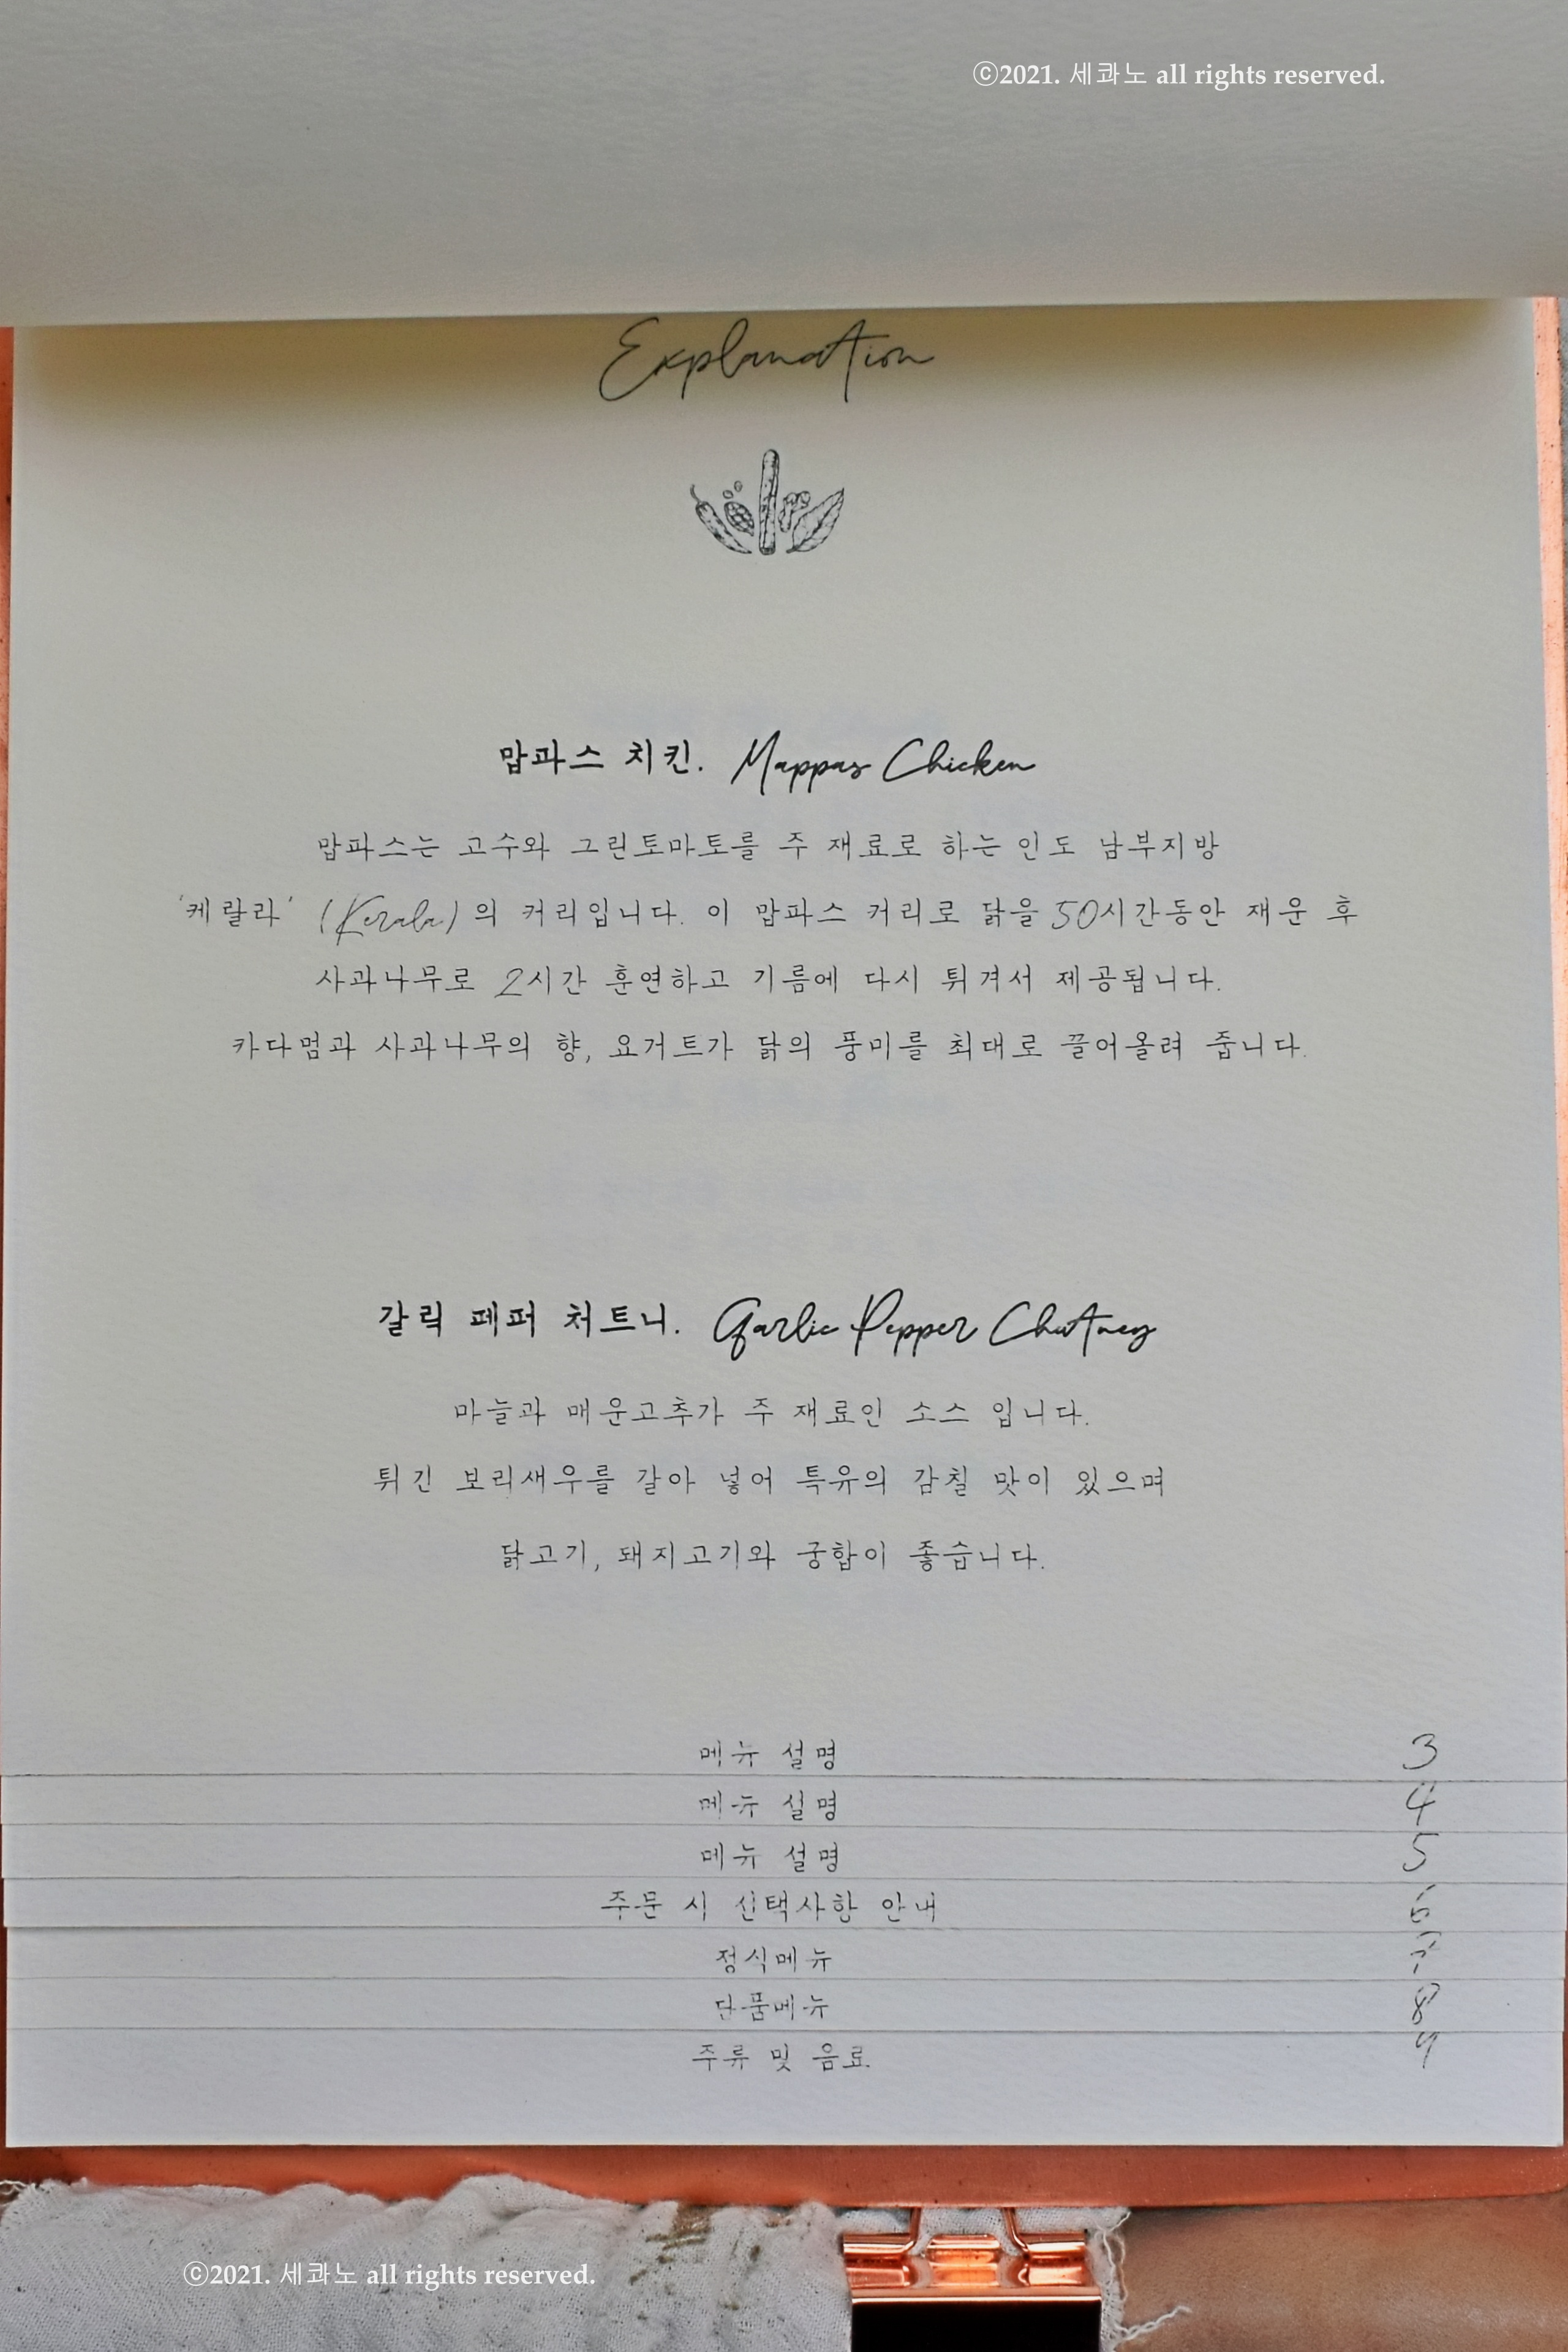 ⓒ2021. 세콰노 all rights reserved.
Explanation
맙파스 치킨. Mappas Chicken
맙파스는 고수와 그린토마토를 주 재료로 하는 인도 남부지방
'케랄라' (Kerala)의 커리입니다. 이 맙파스 커리로 닭을 50시간동안 재운 후
사과나무로 2시간 훈연하고 기름에 다시 튀겨서 제공됩니다.
카다멈과 사과나무의 향, 요거트가 닭의 풍미를 최대로 끌어올려 줍니다.
갈릭 페퍼 처트니. Garlic Pepper Chutney
마늘과 매운고추가 주 재료인 소스 입니다.
튀긴 보리새우를 갈아 넣어 특유의 감칠 맛이 있으며
닭고기, 돼지고기와 궁합이 좋습니다.
메뉴 설명 3
메뉴 설명 4
메뉴 설명 5
주문 시 선택사항 안내 6
정식메뉴 7
단품메뉴 8
주류 및 음료 9
ⓒ2021. 세콰노 all rights reserved.